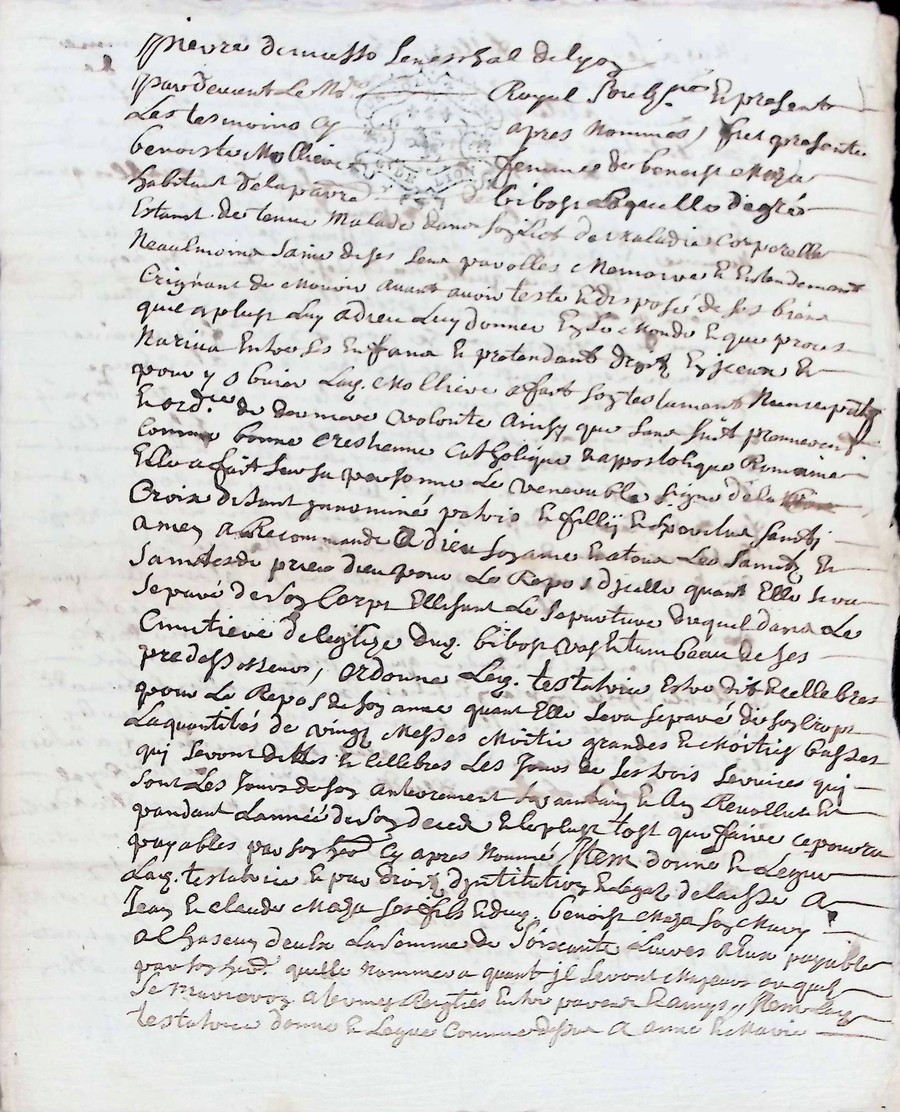 pierre de musso seneschal de lyon
pardevant le no.re Royal soubsigné et presents
Les tesmoins cy apres nommés, fut presente
benoiste Molliere femme de benoist Maza
habitant de la parre de bibost Laquelle de gré
Estant detenue Malade dans son lict de Maladie corporelle
Neaulmoins saine de ses sens parolles Memoire et Entendement
Crignant de Mourir avant avoir testé et disposé de ses biens
que a plust Luy a dieu Luy donner En ce Monde et que proces
Nariva Entre ses Enfans et pretendant droit En iceux et
pour y obvier Lad. Molliere a fait son testament Nuncupatif
et ord.ce de derniere volonte Ainsy que sans suit premierement
comme bonne crestienne Catholique et apostolique Romaine
Elle a fait sur sa personne Le venerable signe de la
Croix disant In nomine patris et fillij et spiritus santi
amen a Recommandé a dieu son ame et a tous Les Saints et
Saintes de prier dieu pour Le Repos d'icelle quant Elle sera
separé de son Corps Ellisant Le sepulture d'iceluy dans Le
Cimetiere de leglize dud. bibost au tumbeau de ses
predessesseurs, ordonne Lad. testatrice Estre dit et cellebres
pour Le Repos de son ame quant Elle sera separé de son Corps
La quantités de vingt Messes Moitie grandes et Moities basses
qui seront dittes et cellebres Les Jours de ses trois services qui
sont Les Jours de son anterrement et au bout de l'an Revollut et
pandant L'année de son deced et le plust tost que faire ce pourra
payables par son her. cy apres Nommé, Item donne et Legue
Lad. testatrice et par droit d'institution et legat delaisse A
Jean et claude Maza ses fils et dud. benoist Maza son Mary
a Chascun d'eux La somme de soixante Livres a Eux payable
par son herd. quelle nommera quant Jl seront Majeurs ou quil
se Marieron a termes Reiglés Entre parens et amys, Item Lad.
testatrice donne et Legue Comme dessus A anne et Marie